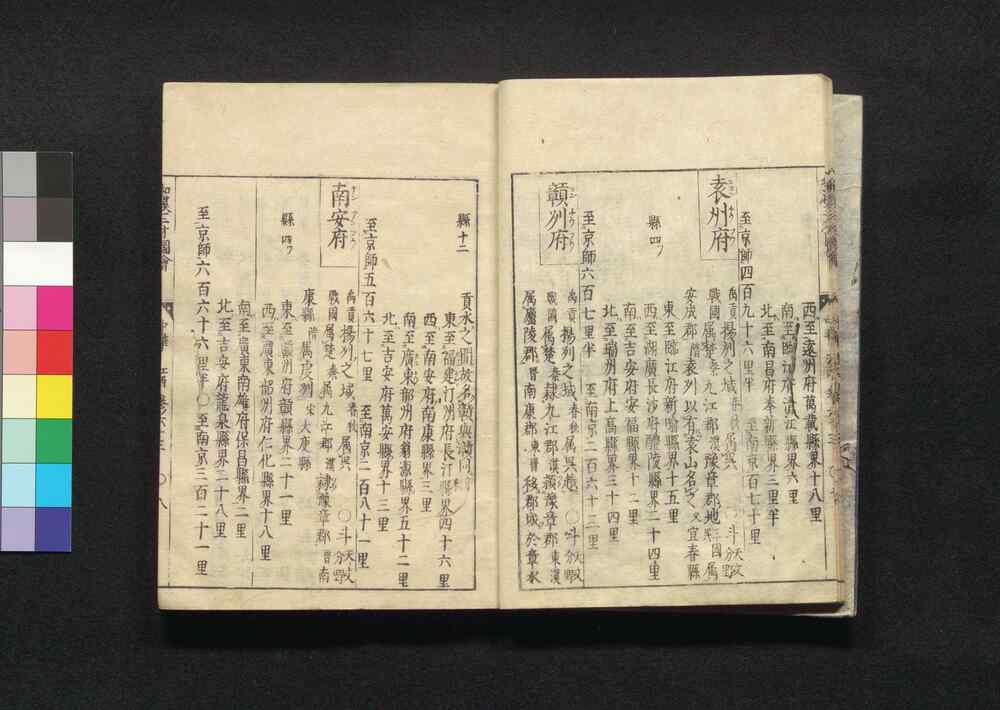 西至遠州府萬載縣界十八里
南至臨江府清江縣界六里
北至南昌府奉新縣界三里半
袁州府
至京師四百九十六里半 至南京百七十里
禹貢揚列之域春秋属吳 〇斗天文分野
戰國属楚秦九江郡漢豫章郡地三國属
安成郡隋袁列以有袁山名之 又宜春縣
縣四
東至臨江府新喻縣界十五里
西至湖廣長沙府醴陵縣界二十四里
南至吉安府安福縣界十二里
北至瑞州府上高縣界三十四里
贑列府
至京師六百七里半 至南京二百六十二里
禹貢揚列之域春秋属吳越 〇斗天文分野
戰國属楚秦隸九江郡漢豫章郡東漢
属廬陵郡晉南康郡東晉移郡城於章水
貢水之間故名贑與灨同
縣十二
東至福建汀州府長汀縣界四十六里
西至南安府南康縣界三里
南至廣東韶州府翁源縣界五十二里
北至吉安府萬安縣界十三里
南安府
至京師五百六十七里 至南京二百八十一里
禹貢揚列之域春秋属吳 〇斗天文分野
戰國属楚秦属九江郡漢隸豫章郡晉南
康縣隋属虔列宋大庾縣
縣四
東至贑州府贑縣界二十一里
西至廣東韶州府仁化縣界十八里
南至廣東南雄府保昌縣界二里
北至吉安府龍泉縣界二十八里
至京師六百六十六里半〇至南京三百二十一里